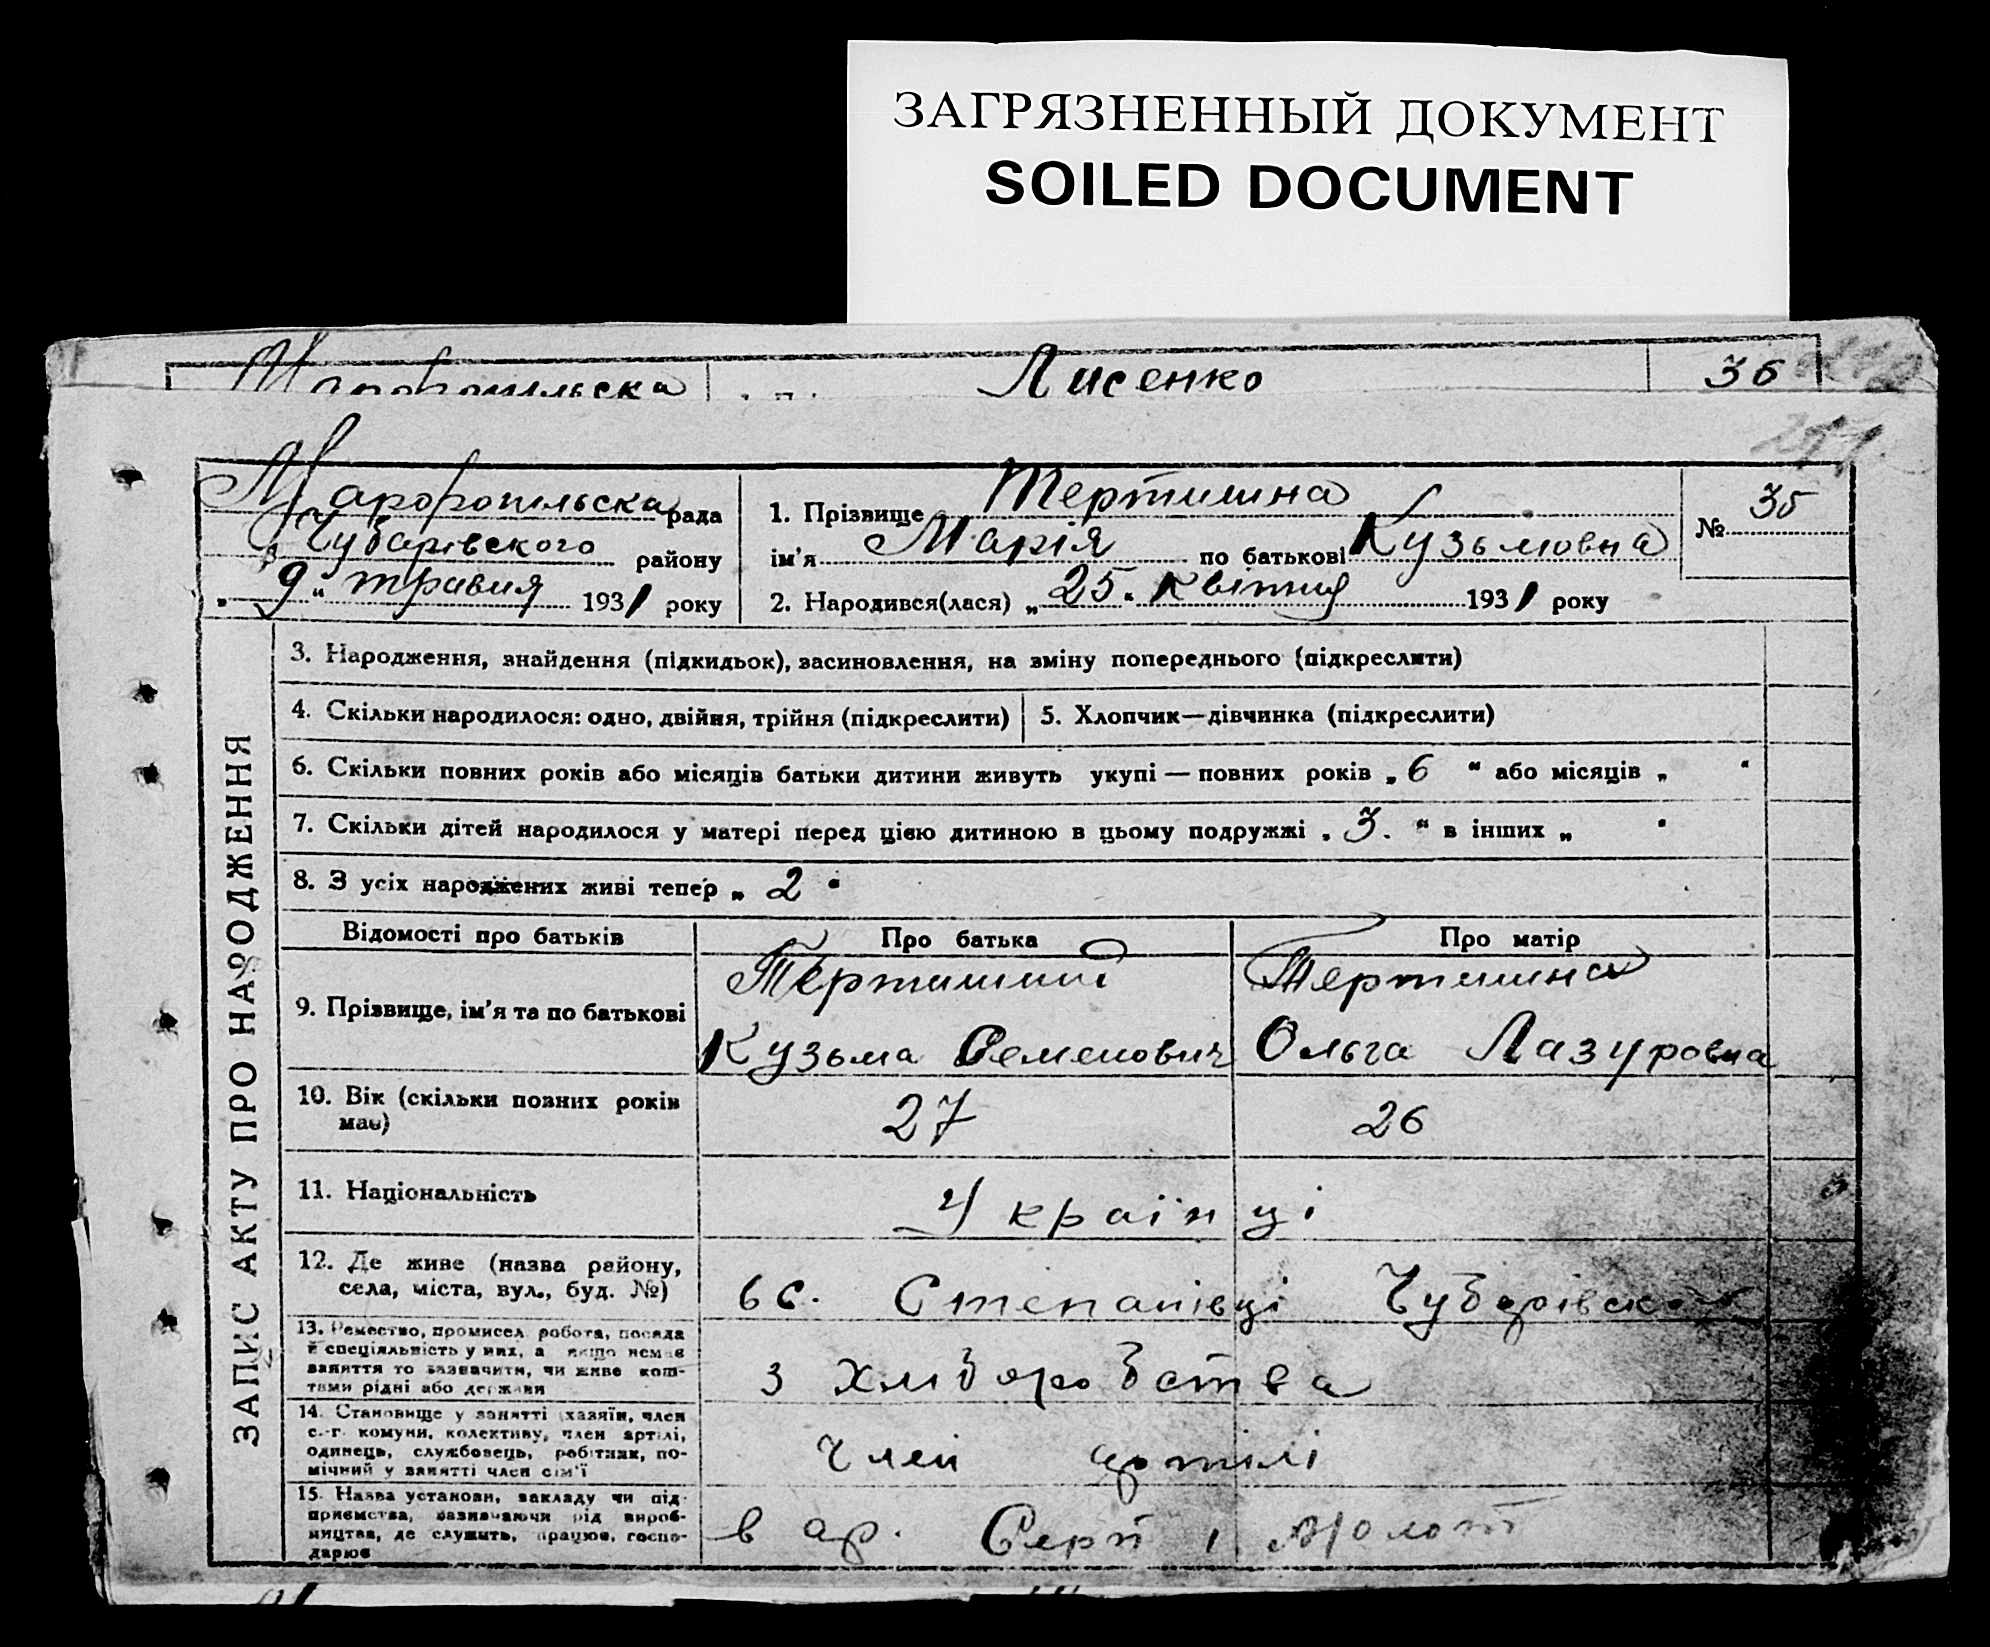 ЗАГРЯЗНЕННЫЙ ДОКУМЕНТ
SOILED DOCUMENT
Лисенко
36
Марополільська рада
Чубарівського району
„ 9 “ травня 1931 року
1. Прізвище Тертишна
ім’я Марія по батькові Кузьмовна
2. Народився(лася) „ 25 “ квітня 1931 року
№ 35
ЗАПИС АКТУ ПРО НАРОДЖЕННЯ
3. Народження, знайдення (підкидьок), засиновлення, на зміну попереднього (підкреслити)
4. Скільки народилося: одно, двійня, трійня (підкреслити)
5. Хлопчик—дівчинка (підкреслити)
6. Скільки повних років або місяців батьки дитини живуть укупі — повних років „ 6 “ або місяців „ “
7. Скільки дітей народилося у матері перед цією дитиною в цьому подружжі „ 3. “ в інших „ “
8. З усіх народжених живі тепер „ 2 “
Відомості про батьків
Про батька
Про матір
9. Прізвище, ім’я та по батькові
Тертишний
Кузьма Семенович
Тертишна
Ольга Лазуровна
10. Вік (скільки повних років
має)
27
26
11. Національність
Українці
12. Де живе (назва району,
села, міста, вул., буд. №)
в с. Степанівці Чубарівськ
13. Ремество, промисел робота, посада
й спеціяльність у них, а якщо немає
заняття то зазначити, чи живе кош-
тами рідні або держави
з хліборобства
14. Становище у занятті (хазяїн, член
с.-г. комуни, колективу, член артілі,
одинець, службовець, робітник, по-
мічний у занятті член сім’ї
Член артілі
15. Назва установи, закладу чи під-
приємства, зазначаючи рід вироб-
ництва, де служить, працює, госпо-
дарює
в ар. Серп і молот